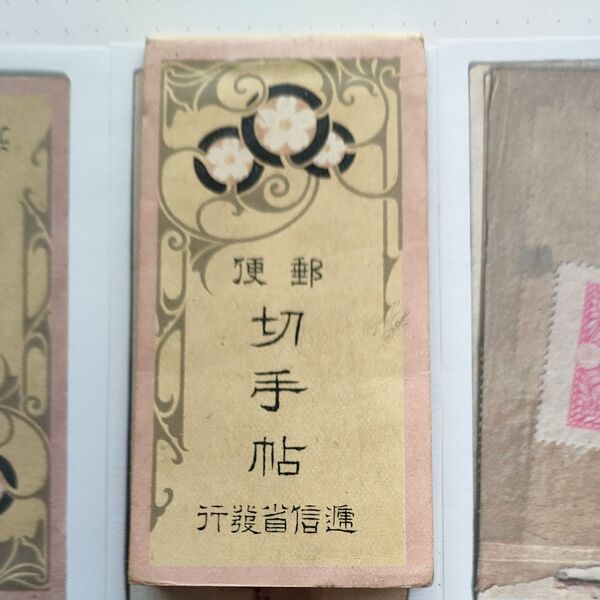 郵便
切手帖
遞信省發行